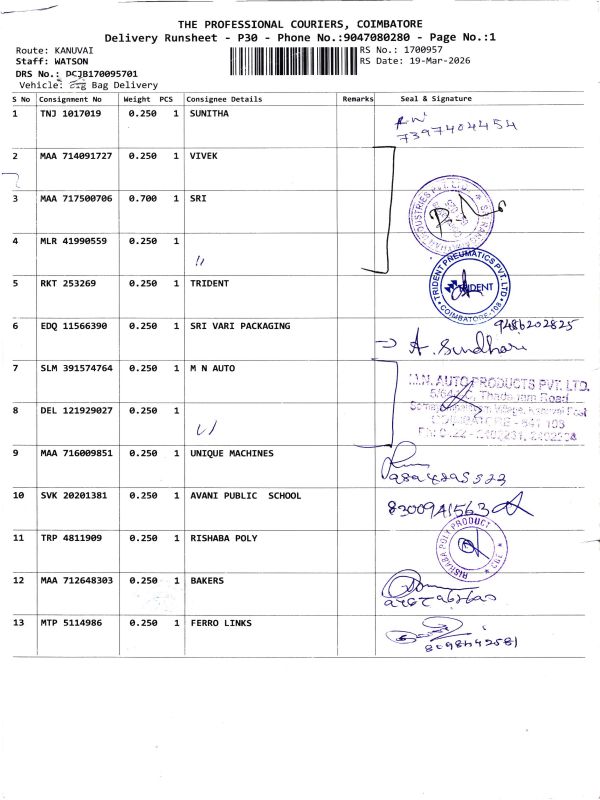 THE PROFESSIONAL COURIERS, COIMBATORE
Delivery Runsheet - P30 - Phone No.:9047080280 - Page No.:1
Route: KANUVAI
RS No.: 1700957
Staff: WATSON
RS Date: 19-Mar-2026
DRS No.: PCJB170095701
Vehicle: Bag Delivery
S No Consignment No Weight PCS Consignee Details Remarks Seal & Signature
1 TNJ 1017019 0.250 1 SUNITHA
7397404454
2 MAA 714091727 0.250 1 VIVEK
3 MAA 717500706 0.700 1 SRI
4 MLR 41990559 0.250 1
"
5 RKT 253269 0.250 1 TRIDENT
TRIDENT PNEUMATICS PVT. LTD.
TRIDENT
COIMBATORE-108
6 EDQ 11566390 0.250 1 SRI VARI PACKAGING
9486202825
A. Sundhari
7 SLM 391574764 0.250 1 M N AUTO
M.N. AUTO PRODUCTS PVT. LTD.
8 DEL 121929027 0.250 1
COIMBATORE - 641 108
9 MAA 716009851 0.250 1 UNIQUE MACHINES
10 SVK 20201381 0.250 1 AVANI PUBLIC SCHOOL
8300941563
11 TRP 4811909 0.250 1 RISHABA POLY
RISHABA POLY PRODUCT
12 MAA 712648303 0.250 1 BAKERS
13 MTP 5114986 0.250 1 FERRO LINKS